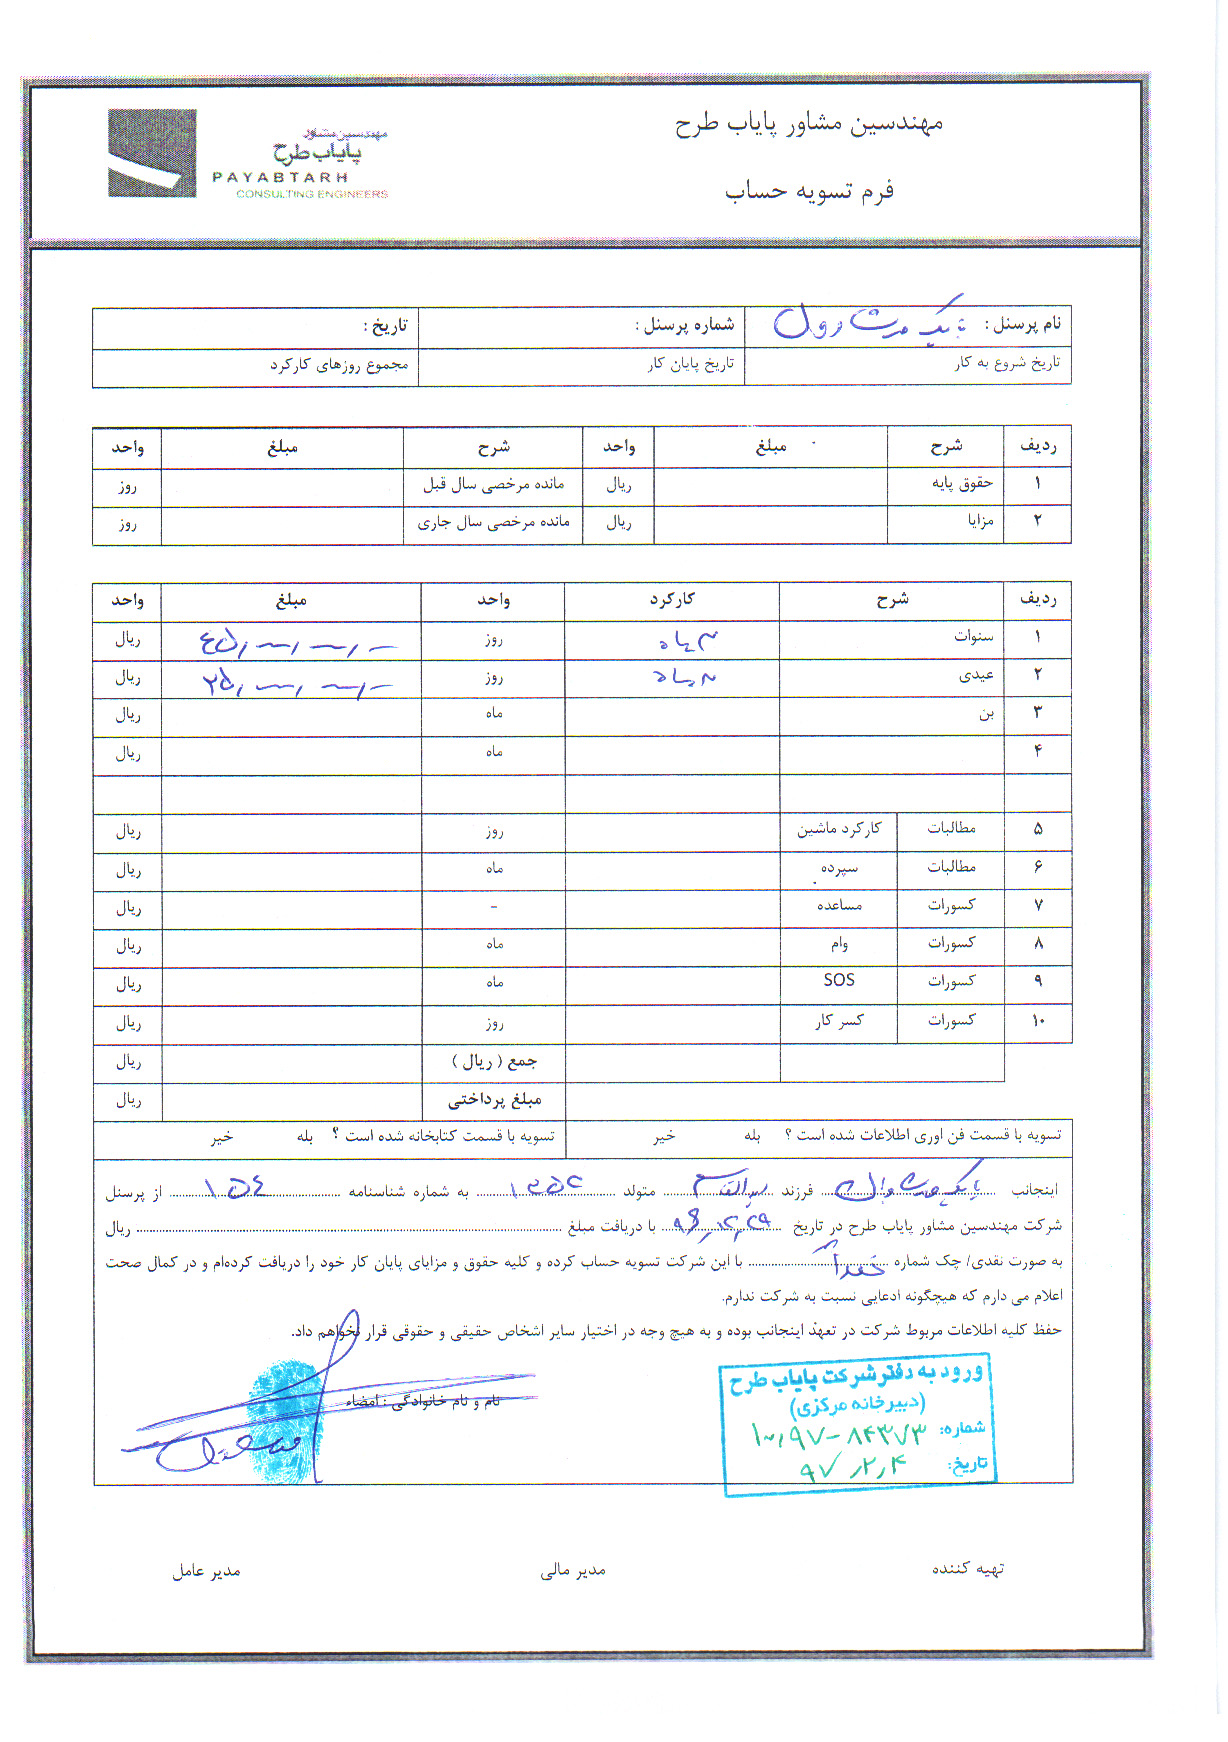 مهندسین مشاور پایاب طرح
فرم تسویه حساب
مهندسین مشاور
پایاب طرح
PAYABTARH
CONSULTING ENGINEERS
نام پرسنل : شماره پرسنل : تاریخ :
تاریخ شروع به کار تاریخ پایان کار مجموع روزهای کارکرد
ردیف شرح مبلغ واحد شرح مبلغ واحد
۱ حقوق پایه ریال مانده مرخصی سال قبل روز
۲ مزایا ریال مانده مرخصی سال جاری روز
ردیف شرح کارکرد واحد مبلغ واحد
۱ سنوات روز ریال
۲ عیدی روز ریال
۳ بن ماه ریال
۴ ماه ریال
۵ مطالبات کارکرد ماشین روز ریال
۶ مطالبات سپرده ماه ریال
۷ کسورات مساعده - ریال
۸ کسورات وام ماه ریال
۹ کسورات SOS ماه ریال
۱۰ کسورات کسر کار روز ریال
جمع ( ریال ) ریال
مبلغ پرداختی ریال
تسویه با قسمت فن اوری اطلاعات شده است ؟ بله خیر تسویه با قسمت کتابخانه شده است ؟ بله خیر
اینجانب فرزند متولد ۱۳۵۲ به شماره شناسنامه ۱۵۴ از پرسنل
شرکت مهندسین مشاور پایاب طرح در تاریخ ۹۶,۱۲,۲۹ با دریافت مبلغ ریال
به صورت نقدی/ چک شماره با این شرکت تسویه حساب کرده و کلیه حقوق و مزایای پایان کار خود را دریافت کرده‌ام و در کمال صحت
اعلام می دارم که هیچگونه ادعایی نسبت به شرکت ندارم.
حفظ کلیه اطلاعات مربوط شرکت در تعهد اینجانب بوده و به هیچ وجه در اختیار سایر اشخاص حقیقی و حقوقی قرار نخواهم داد.
نام و نام خانوادگی : امضاء
ورود به دفتر شرکت پایاب طرح
(دبیرخانه مرکزی)
شماره: ۱۰,۹۷-۸۴۳۷۳
تاریخ: ۹۷,۲,۴
تهیه کننده مدیر مالی مدیر عامل